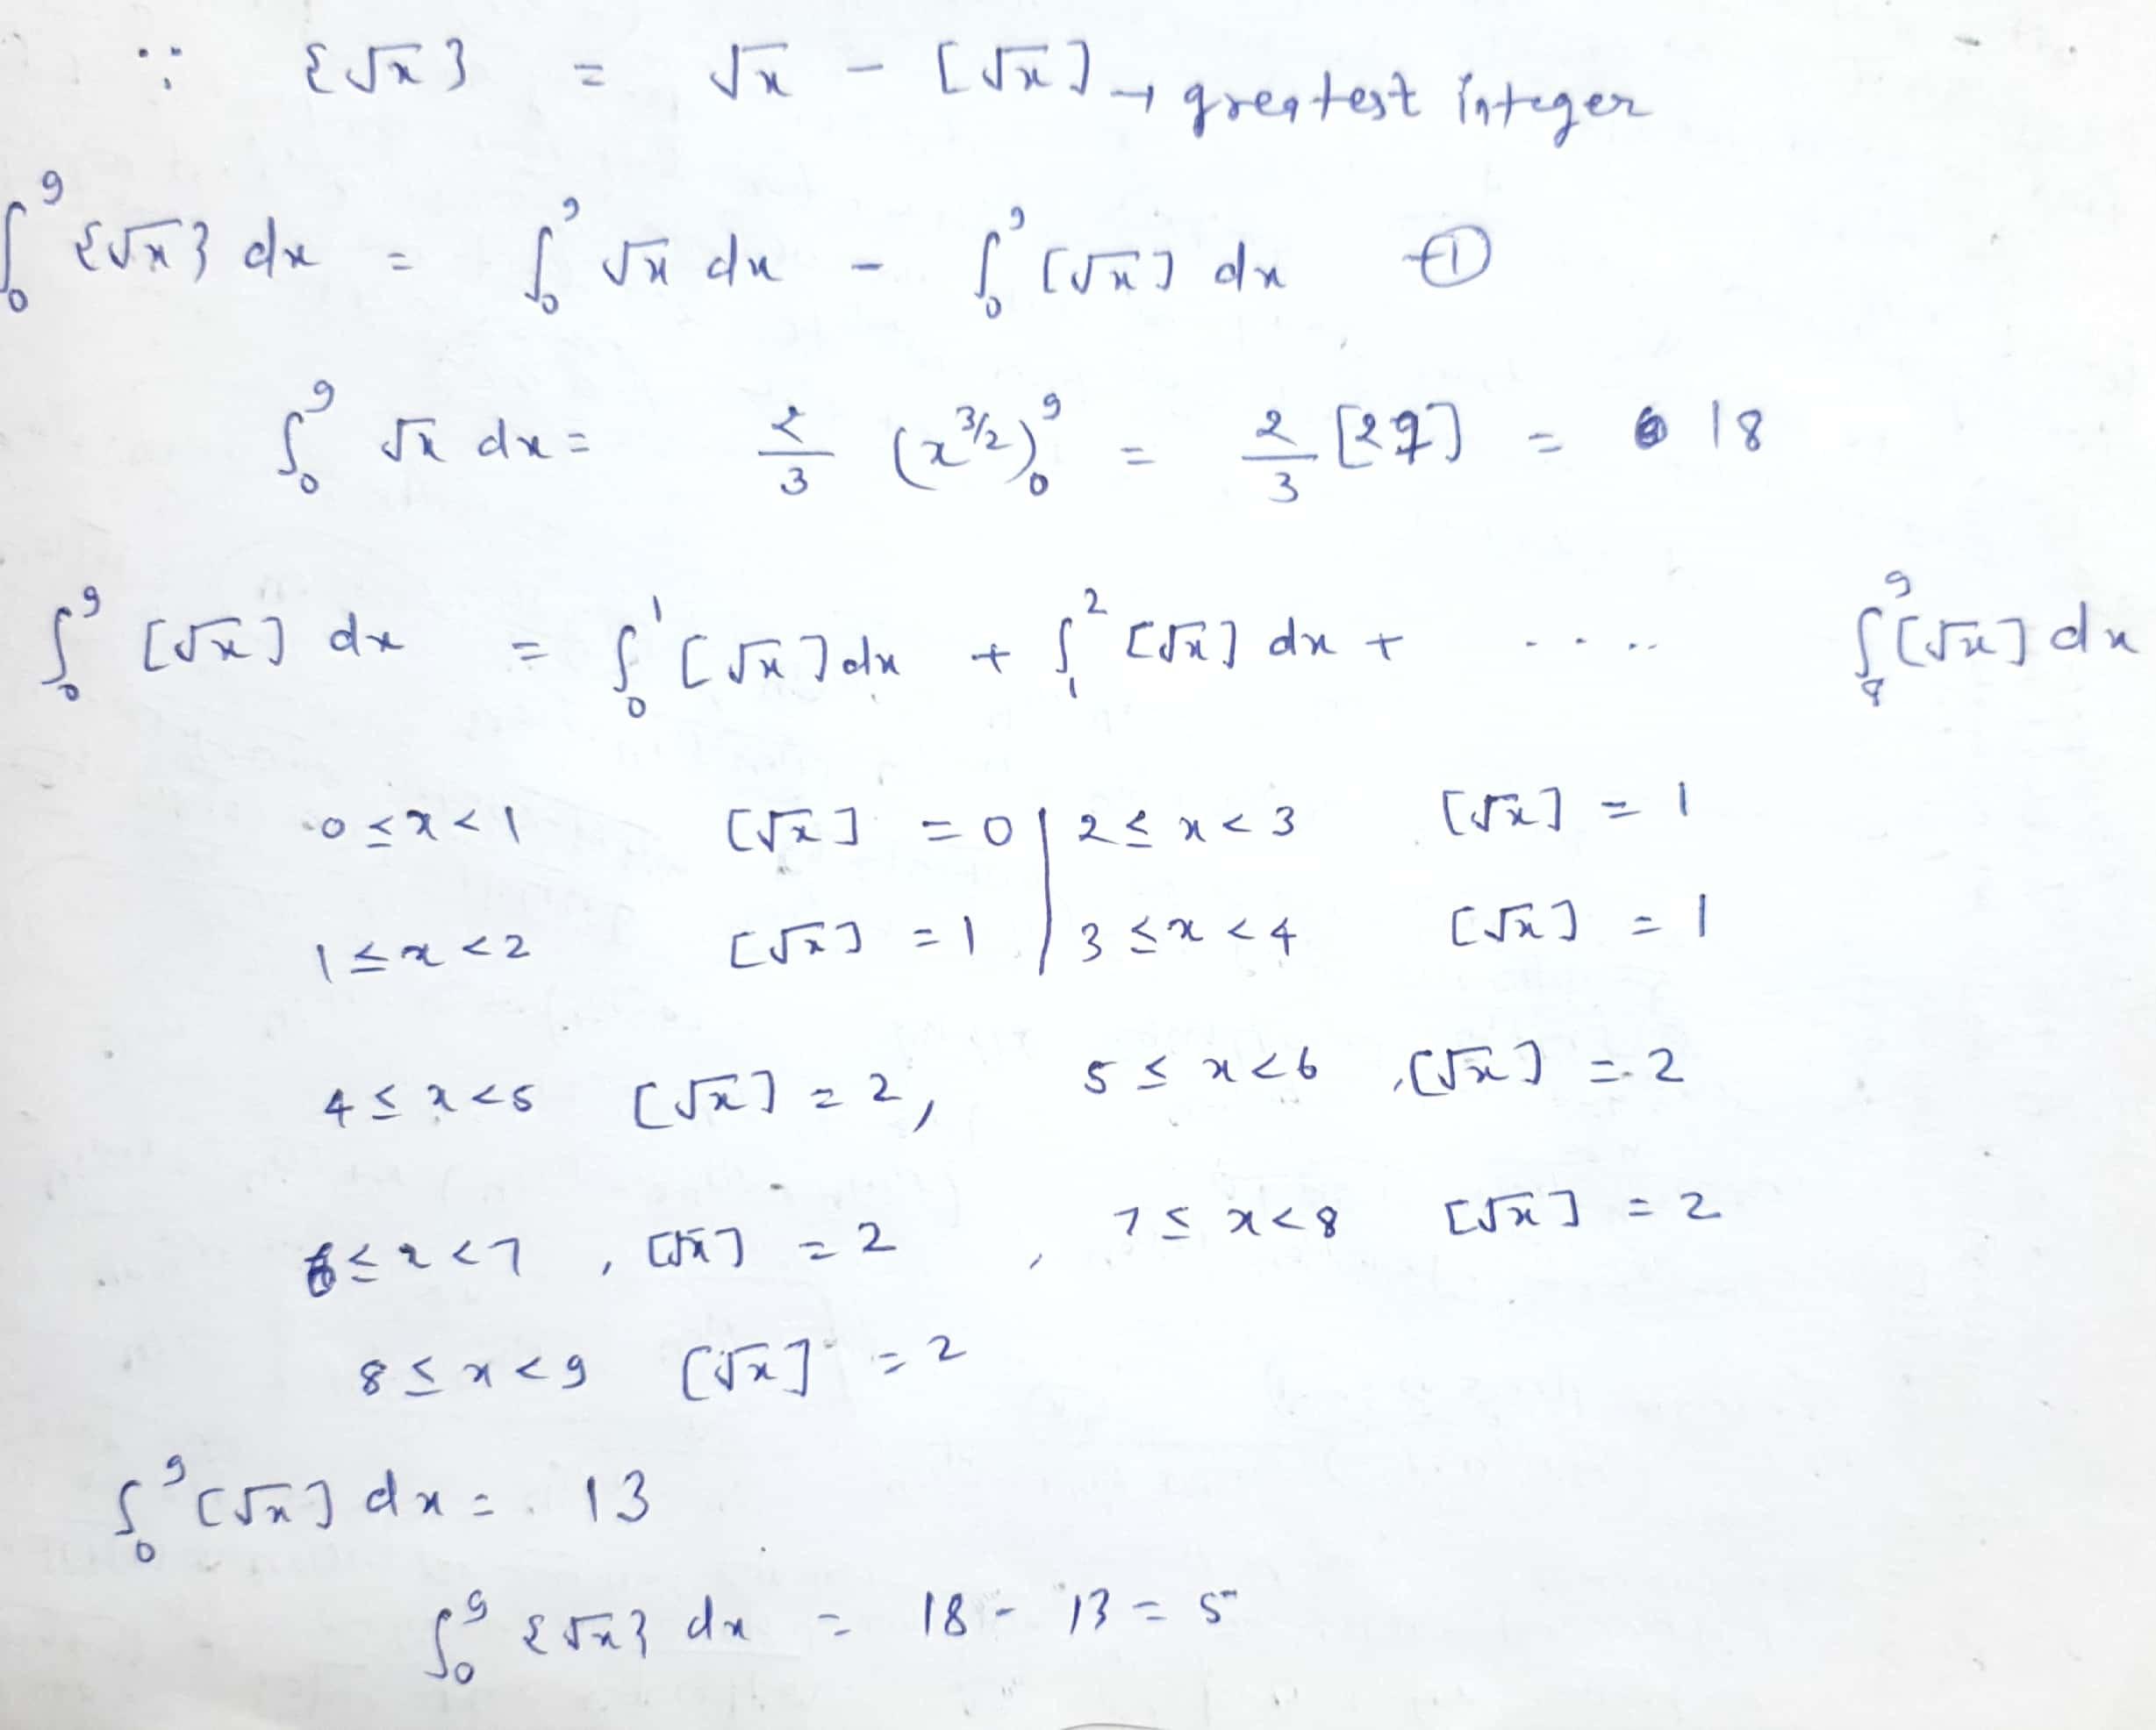 ∵ {√x} = √x - [√x] → greatest integer
∫₀⁹ {√x} dx = ∫₀⁹ √x dx - ∫₀⁹ [√x] dx -①
∫₀⁹ √x dx = 2/3 (x^3/2)₀⁹ = 2/3 [27] = 18
∫₀⁹ [√x] dx = ∫₀¹ [√x] dx + ∫₁² [√x] dx + .... ∫₈⁹ [√x] dx
0 ≤ x < 1 [√x] = 0 | 2 ≤ x < 3 [√x] = 1
1 ≤ x < 2 [√x] = 1 | 3 ≤ x < 4 [√x] = 1
4 ≤ x < 5 [√x] = 2, 5 ≤ x < 6, [√x] = 2
6 ≤ x < 7, [√x] = 2, 7 ≤ x < 8 [√x] = 2
8 ≤ x < 9 [√x] = 2
∫₀⁹ [√x] dx = 13
∫₀⁹ {√x} dx = 18 - 13 = 5